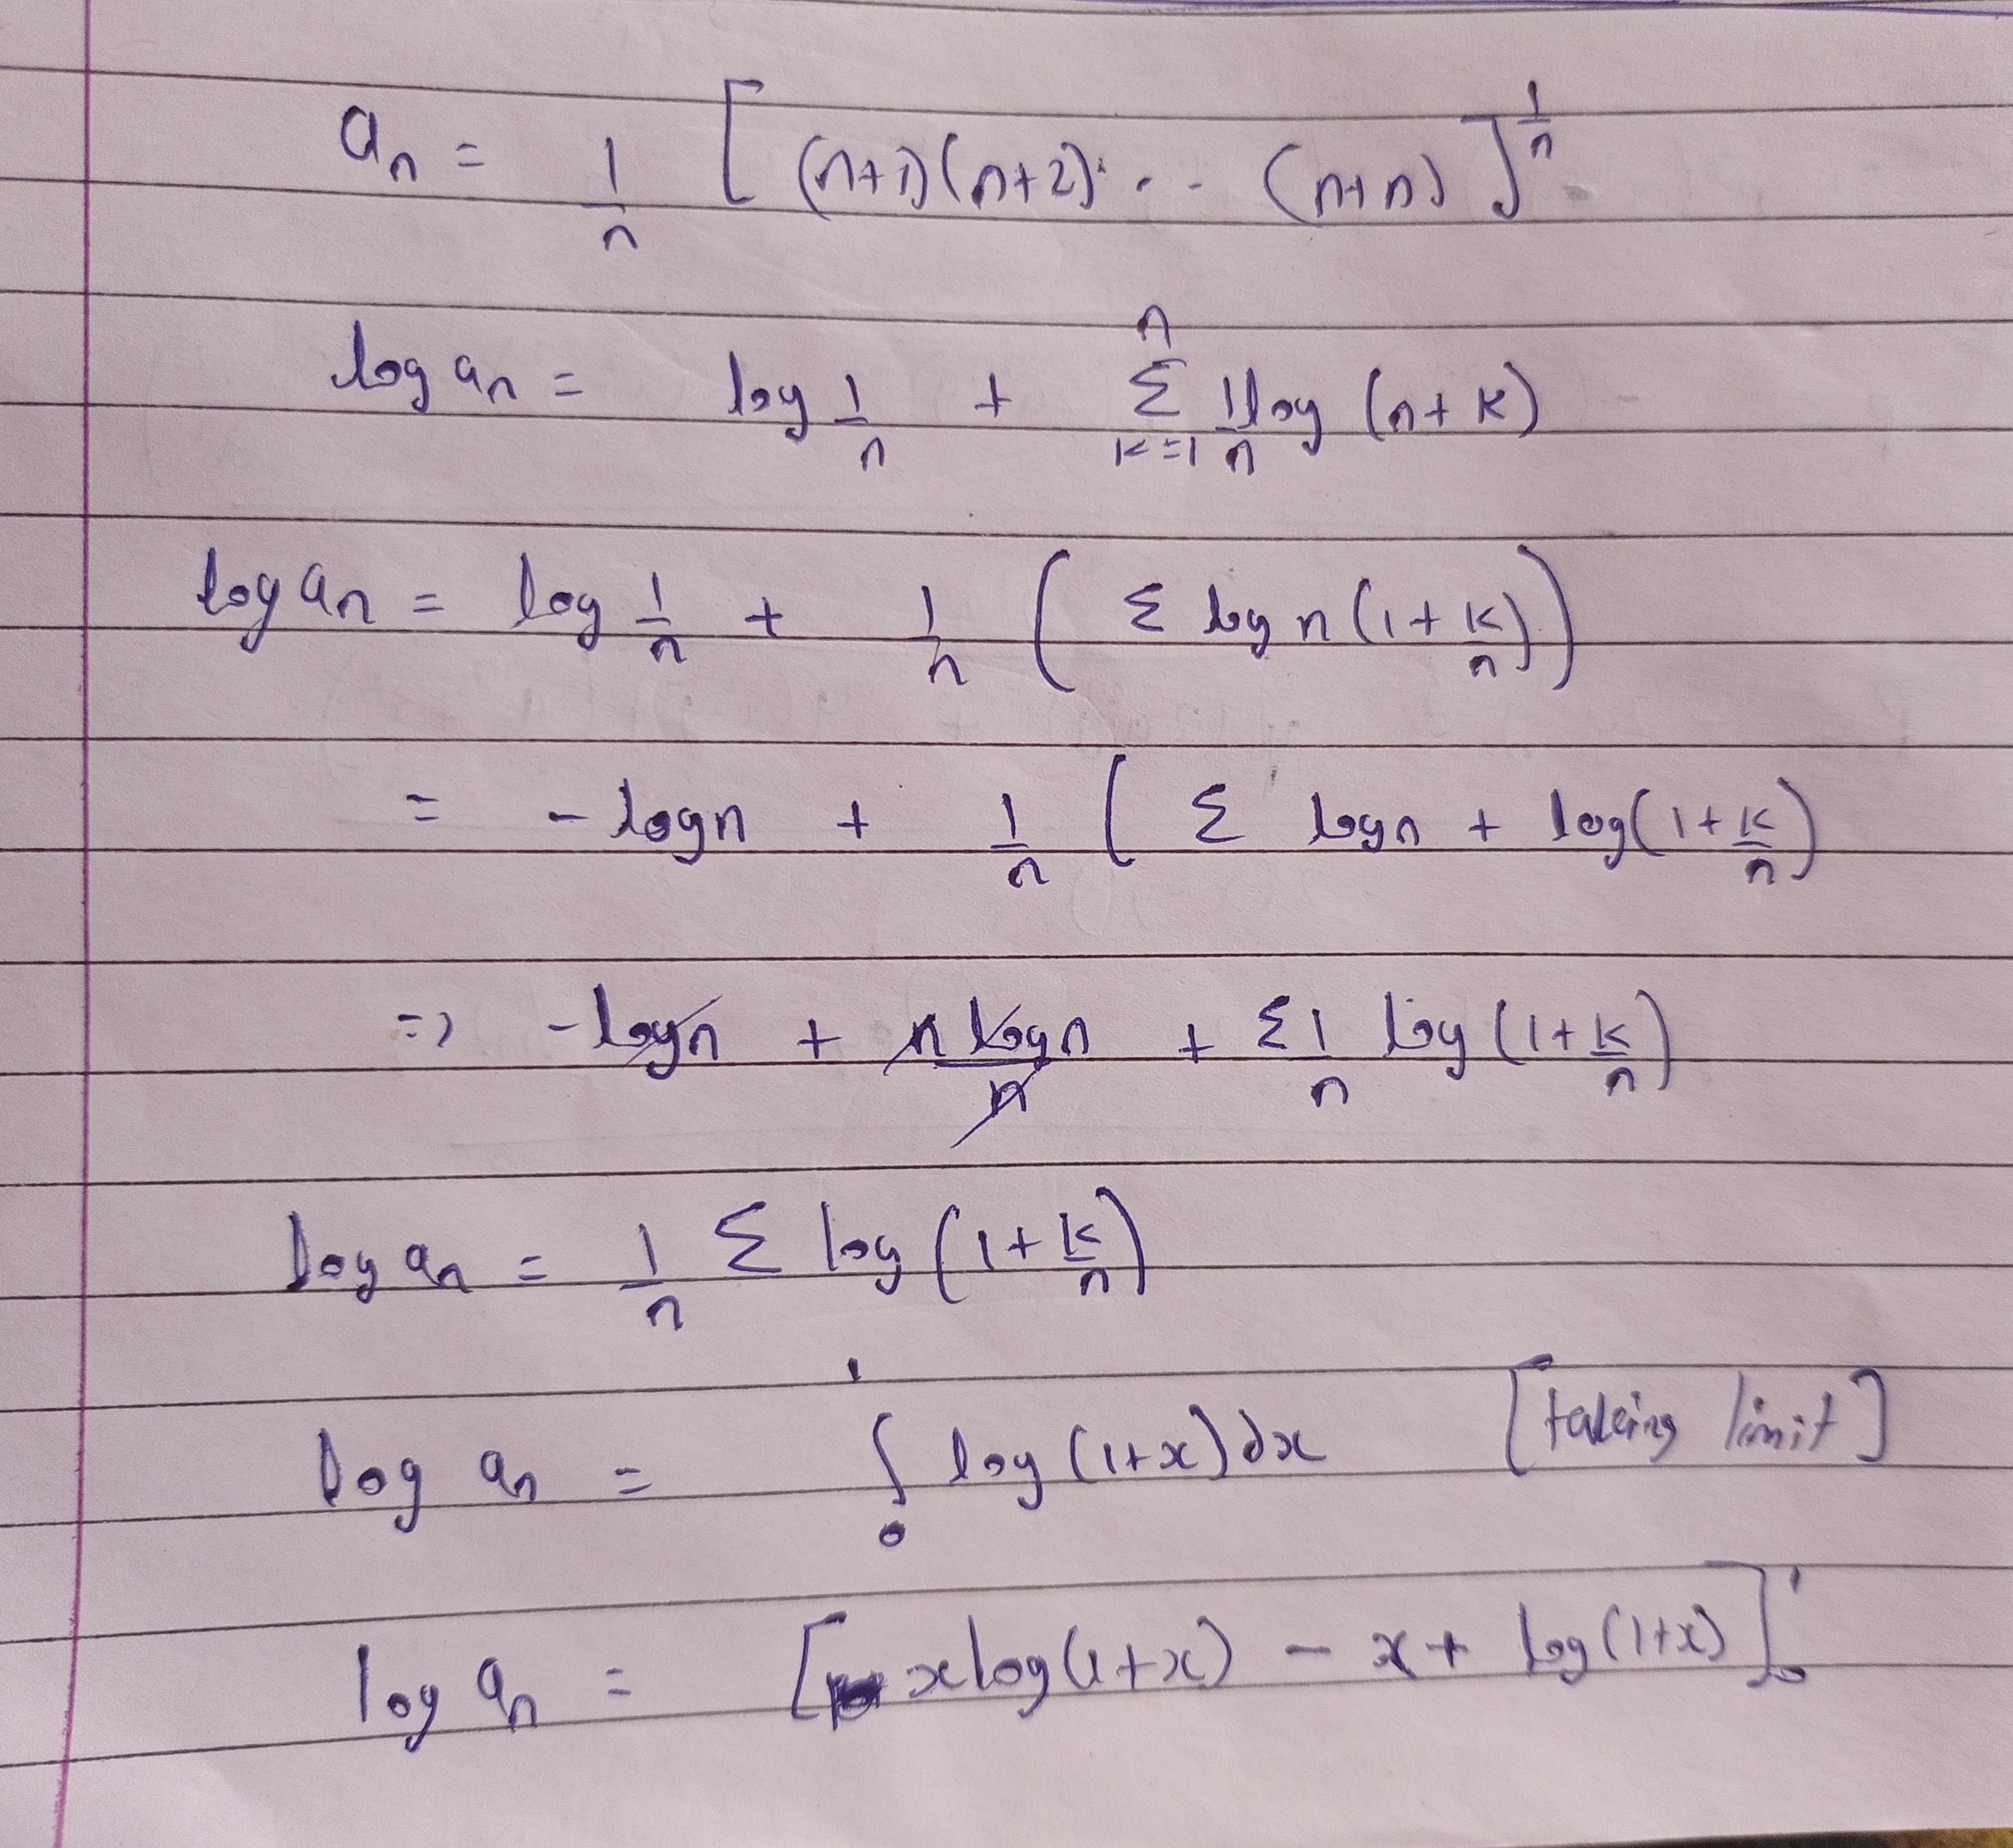 aₙ = 1/n [ (n+1)(n+2)... (n+n) ]^(1/n)
log aₙ = log 1/n + Σ_(k=1)^n 1/n log (n+k)
log aₙ = log 1/n + 1/n ( Σ log n(1+k/n) )
= - logn + 1/n ( Σ logn + log(1+k/n)
=> -logn + n logn/n + Σ 1/n log (1+k/n)
log aₙ = 1/n Σ log (1+k/n)
log aₙ = ∫₀¹ log (1+x) dx [taking limit]
log aₙ = [ x log(1+x) - x + log(1+x) ]₀¹